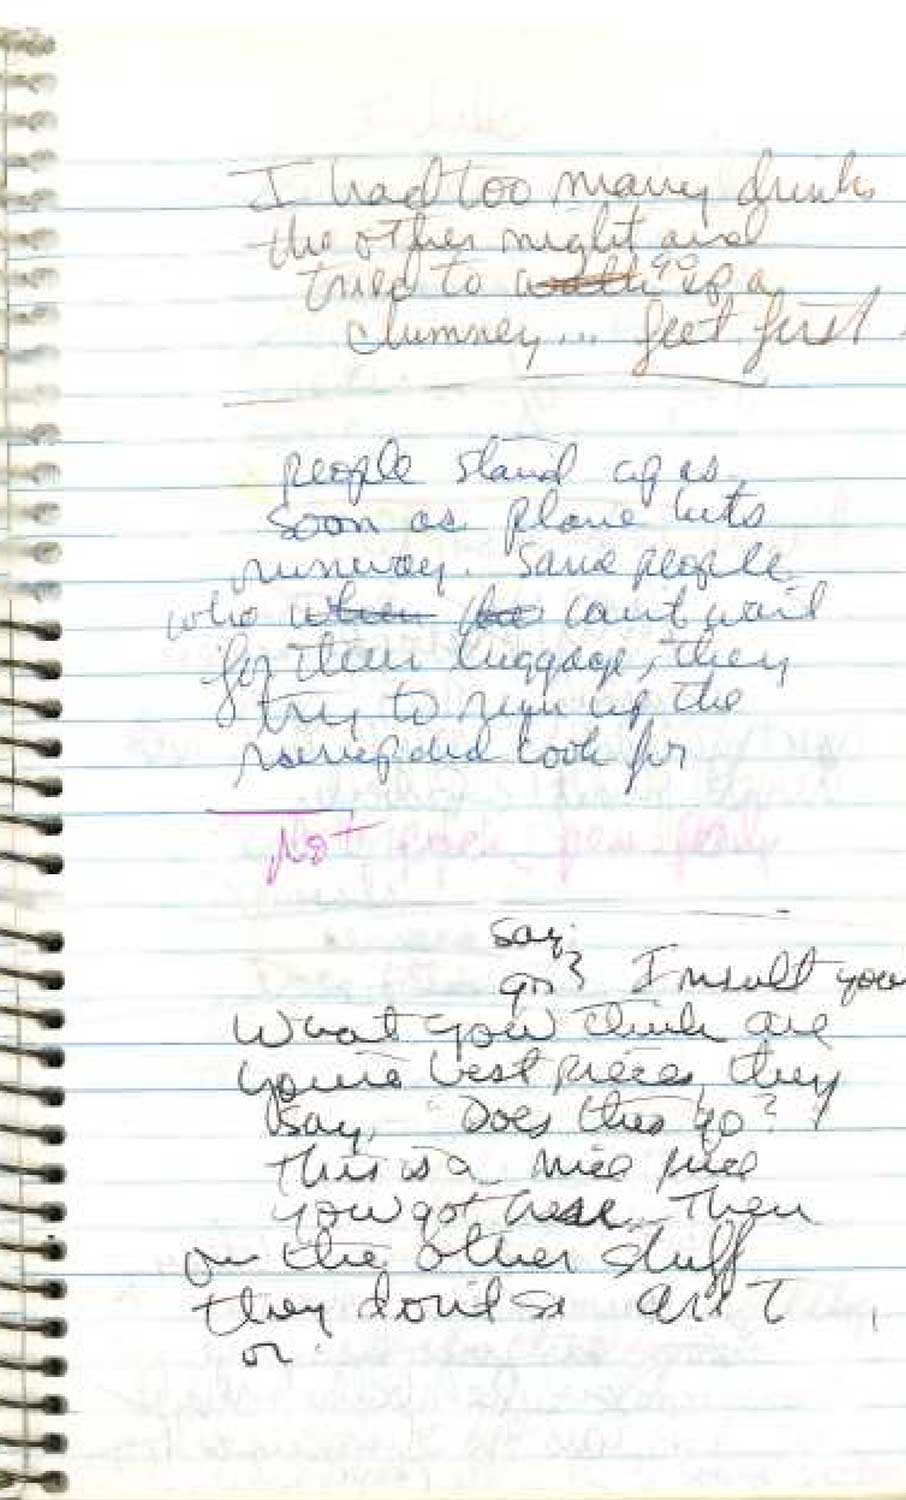 I had too many drinks
the other night and
tried to walk go up a
chimney... feet first
people stand up as
soon as plane hits
runway. Same people
who when can't wait
for their luggage, they
try to up the
and look for
Not
say
go? Insult you
What you think are
your best pieces, they
say, "Does this go?
this is a nice piece
you got here. Then
on the other stuff
they don't say
or